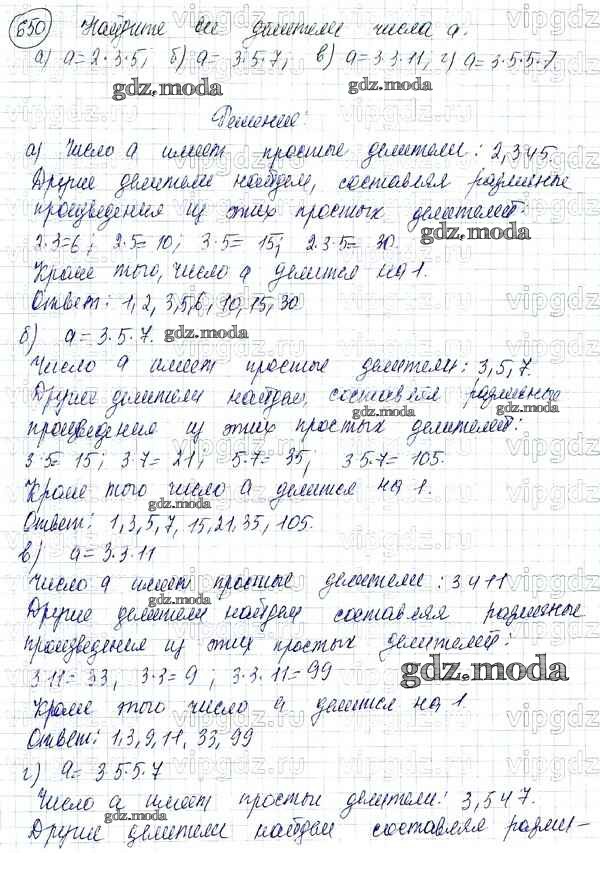 650 Найдите все делители числа a.
а) a=2·3·5, б) a=3·5·7, в) a=3·3·11, г) a=3·5·5·7
gdz.moda gdz.moda
Решение:
а) Число a имеет простые делители: 2,3 и 5.
Другие делители найдем, составляя различные
произведения из этих простых делителей:
2·3=6; 2·5=10; 3·5=15; 2·3·5=30.
gdz.moda
Кроме того, число a делится на 1.
Ответ: 1, 2, 3, 5, 6, 10, 15, 30
б) a=3·5·7. gdz.moda
Число a имеет простые делители: 3, 5, 7.
Другие делители найдем, составляя различные
gdz.moda gdz.moda
произведения из этих простых делителей:
3·5=15; 3·7=21; 5·7=35; 3·5·7=105.
Кроме того число a делится на 1.
gdz.moda
Ответ: 1, 3, 5, 7, 15, 21, 35, 105.
в) a=3·3·11
Число a имеет простые делители: 3 и 11
Другие делители найдем составляя различные
gdz.moda gdz.moda
произведения из этих простых делителей:
3·11=33; 3·3=9; 3·3·11=99
gdz.moda
Кроме того число a делится на 1.
Ответ: 1, 3, 9, 11, 33, 99
г) a=3·5·5·7
Число a имеет простые делители: 3, 5 и 7.
Другие делители найдем составляя разли-
gdz.moda gdz.moda
vipgdz.ru